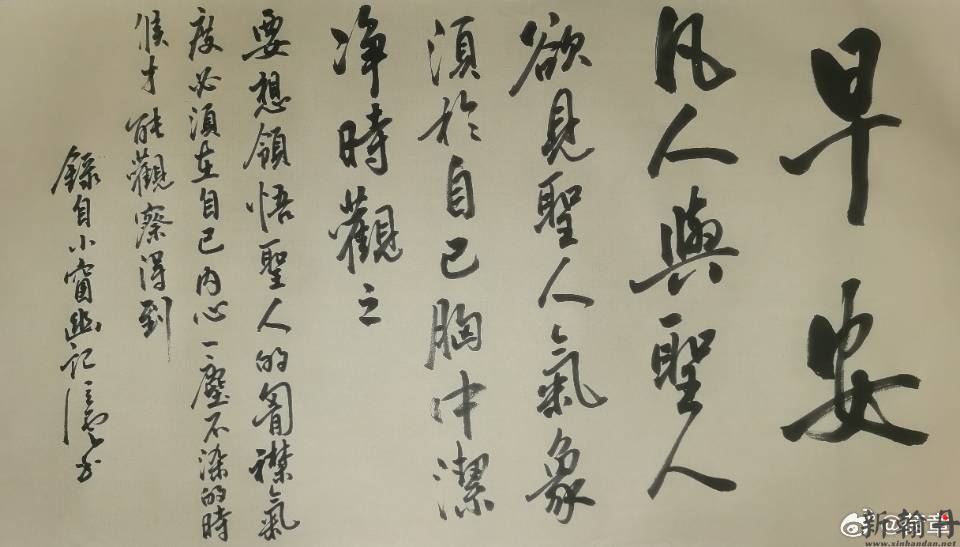 早安
凡人與聖人
欲見聖人氣象
須於自己胸中潔
淨時觀之
要想領悟聖人的胷襟氣
度必須在自己内心一塵不染的時
候才能觀察得到
錄自小窗幽記
@翰章
新翰丹
www.xinhandan.net